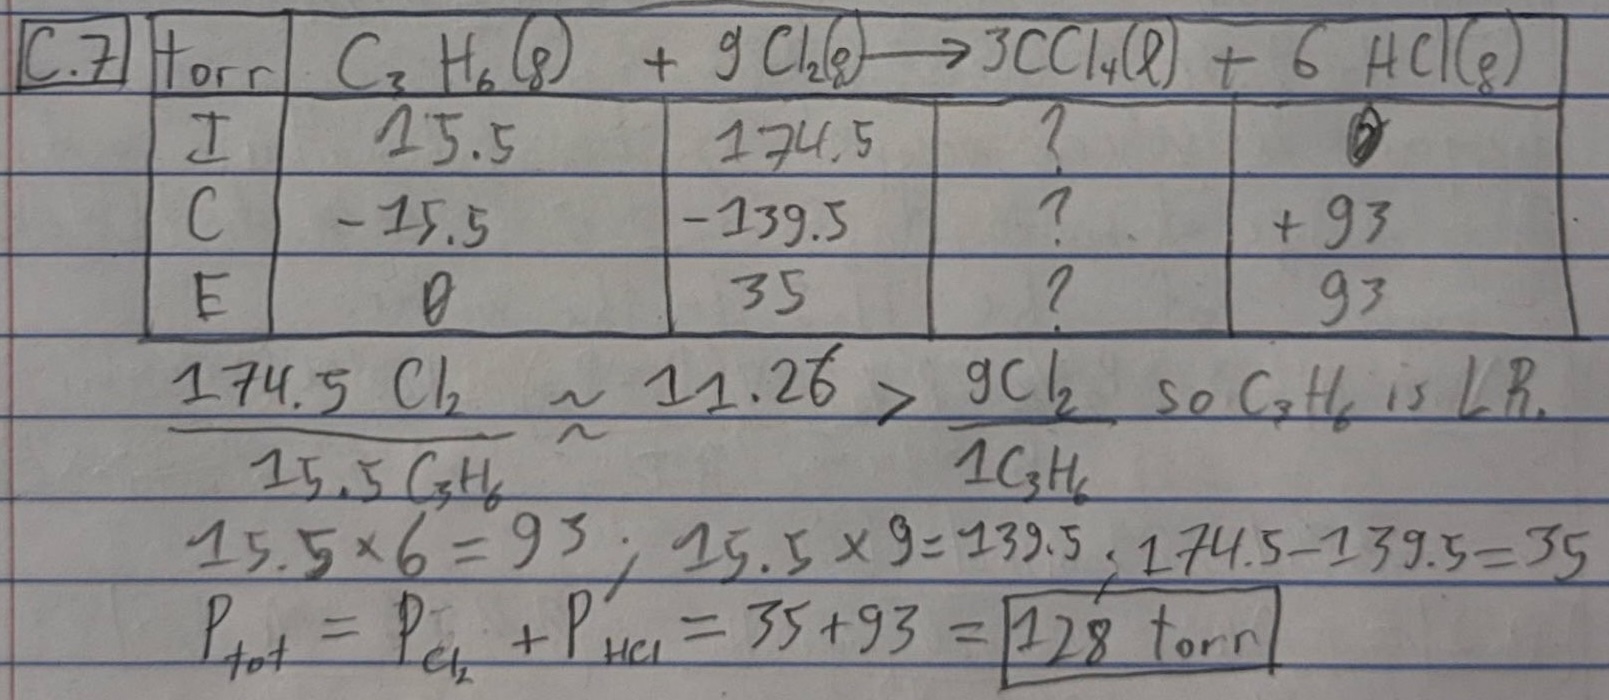 C.7 torr C₃H₆(g) + 9Cl₂(g) → 3CCl₄(l) + 6 HCl(g)
I 15.5 174.5 ? 0
C -15.5 -139.5 ? +93
E 0 35 ? 93
174.5 Cl₂ ≈ 11.26 > 9Cl₂ so C₃H₆ is LR.
15.5 C₃H₆ 1C₃H₆
15.5×6=93; 15.5×9=139.5; 174.5-139.5=35
P_tot = P_Cl₂ + P_HCl = 35+93 = 128 torr